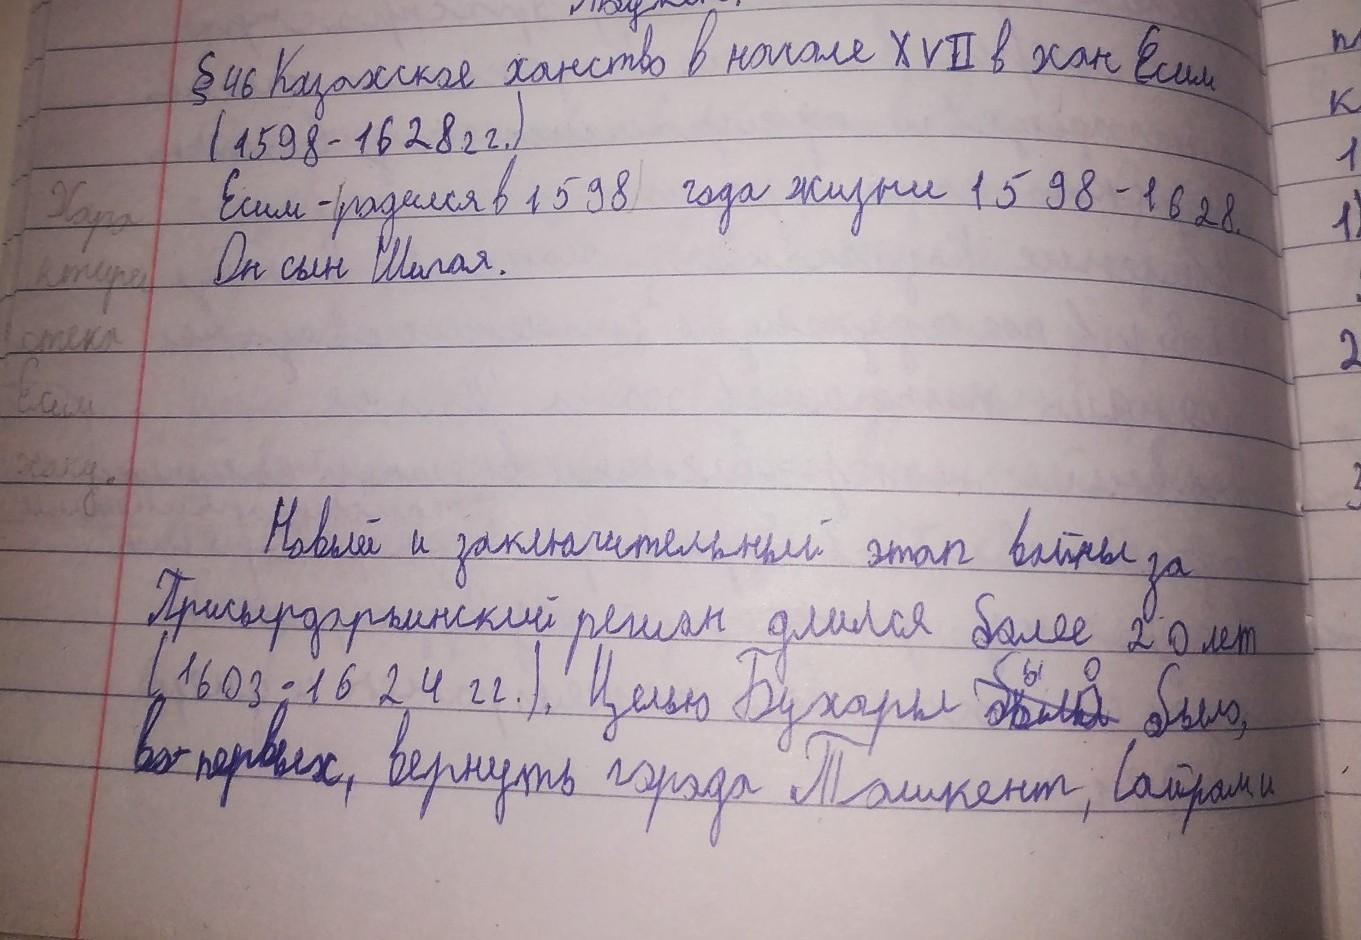 §46 Казахское ханство в начале XVII в хан Есим
(1598-1628гг.)
Есим - родился в 1598 года жизни 1598-1628.
Он сын Шигая.
Хара
ктери
стека
Есим
хану.
Новый и заключительный этап войны за
Присырдарьинский регион длился более 20 лет
(1603-1624 гг.). Целью Бухары было,
во-первых, вернуть города Ташкент, Сайрам и